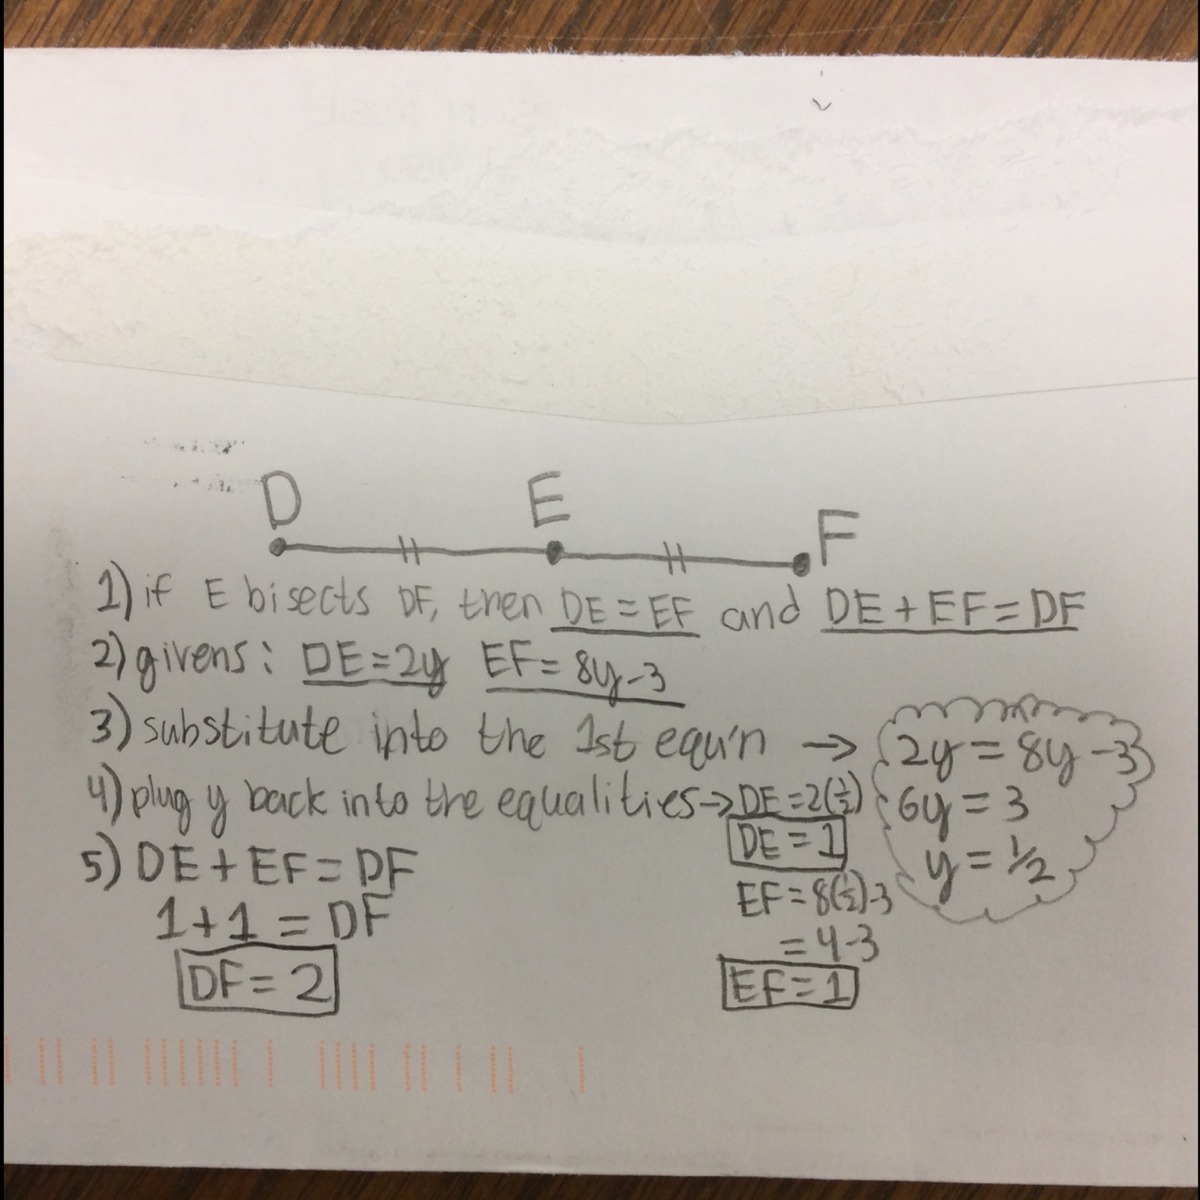 D E F
1) if E bisects DF, then DE = EF and DE + EF = DF
2) givens: DE = 2y EF = 8y - 3
3) substitute into the 1st equ'n → 2y = 8y - 3
6y = 3
y = 1/2
4) plug y back into the equalities → DE = 2(1/2)
DE = 1
EF = 8(1/2) - 3
= 4 - 3
EF = 1
5) DE + EF = DF
1 + 1 = DF
DF = 2